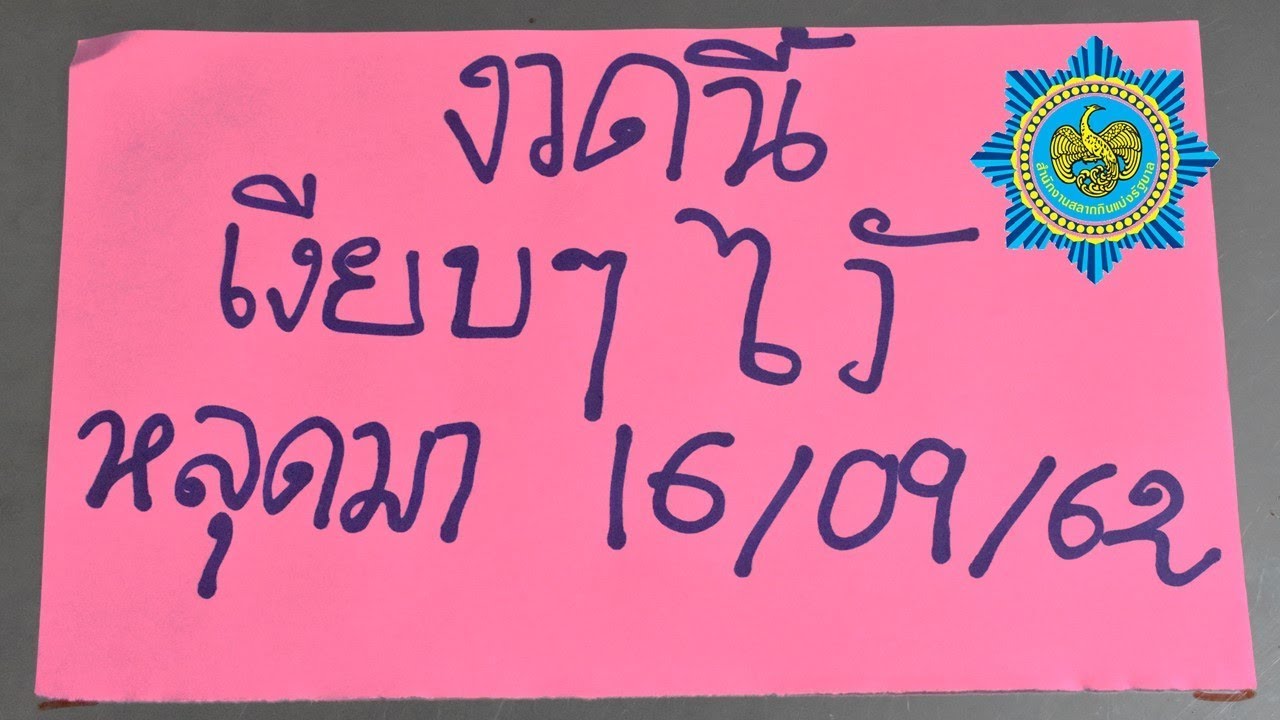 งวดนี้
เงียบๆ ไว้
หลุดมา 16/09/62
สำนักงานสลากกินแบ่งรัฐบาล